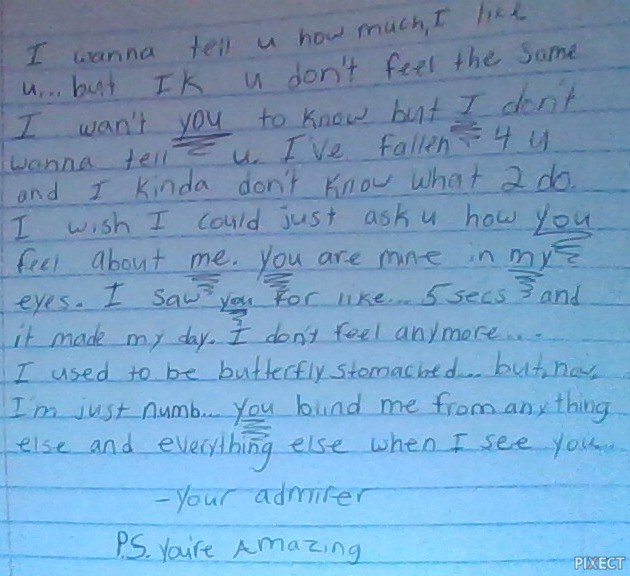 I wanna tell u how much, I like
u... but IK u don't feel the same
I wan't you to know but I don't
wanna tell u. I've fallen 4 u
and I kinda don't know what 2 do.
I wish I could just ask u how you
feel about me. You are mine in my
eyes. I saw you for like... 5 secs and
it made my day. I don't feel anymore...
I used to be butterfly stomached... but, now
I'm just numb... you blind me from anything
else and everything else when I see you...
-Your admirer
P.S. You're Amazing
PIXECT